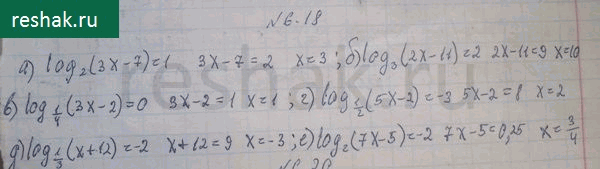 reshak.ru
№6.18
а) log₂(3x-7)=1 3x-7=2 x=3; б) log₃(2x-11)=2 2x-11=9 x=10
в) log_{1/4}(3x-2)=0 3x-2=1 x=1; г) log_{1/2}(5x-2)=-3 5x-2=8 x=2
д) log_{1/3}(x+12)=-2 x+12=9 x=-3; е) log₂(7x-5)=-2 7x-5=0,25 x=3/4